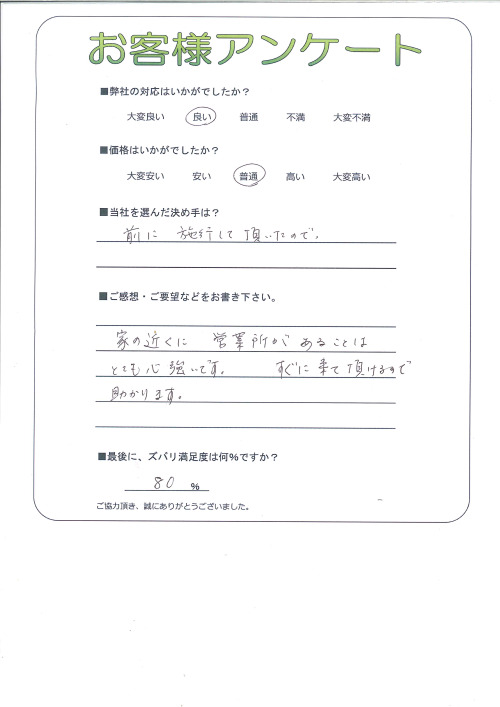 お客様アンケート
■弊社の対応はいかがでしたか？
大変良い 良い 普通 不満 大変不満
■価格はいかがでしたか？
大変安い 安い 普通 高い 大変高い
■当社を選んだ決め手は？
前に 施行して頂いたので。
■ご感想・ご要望などをお書き下さい。
家の近くに 営業所が あることは
とても心強いです。 すぐに来て頂けるので
助かります。
■最後に、ズバリ満足度は何%ですか？
80 %
ご協力頂き、誠にありがとうございました。